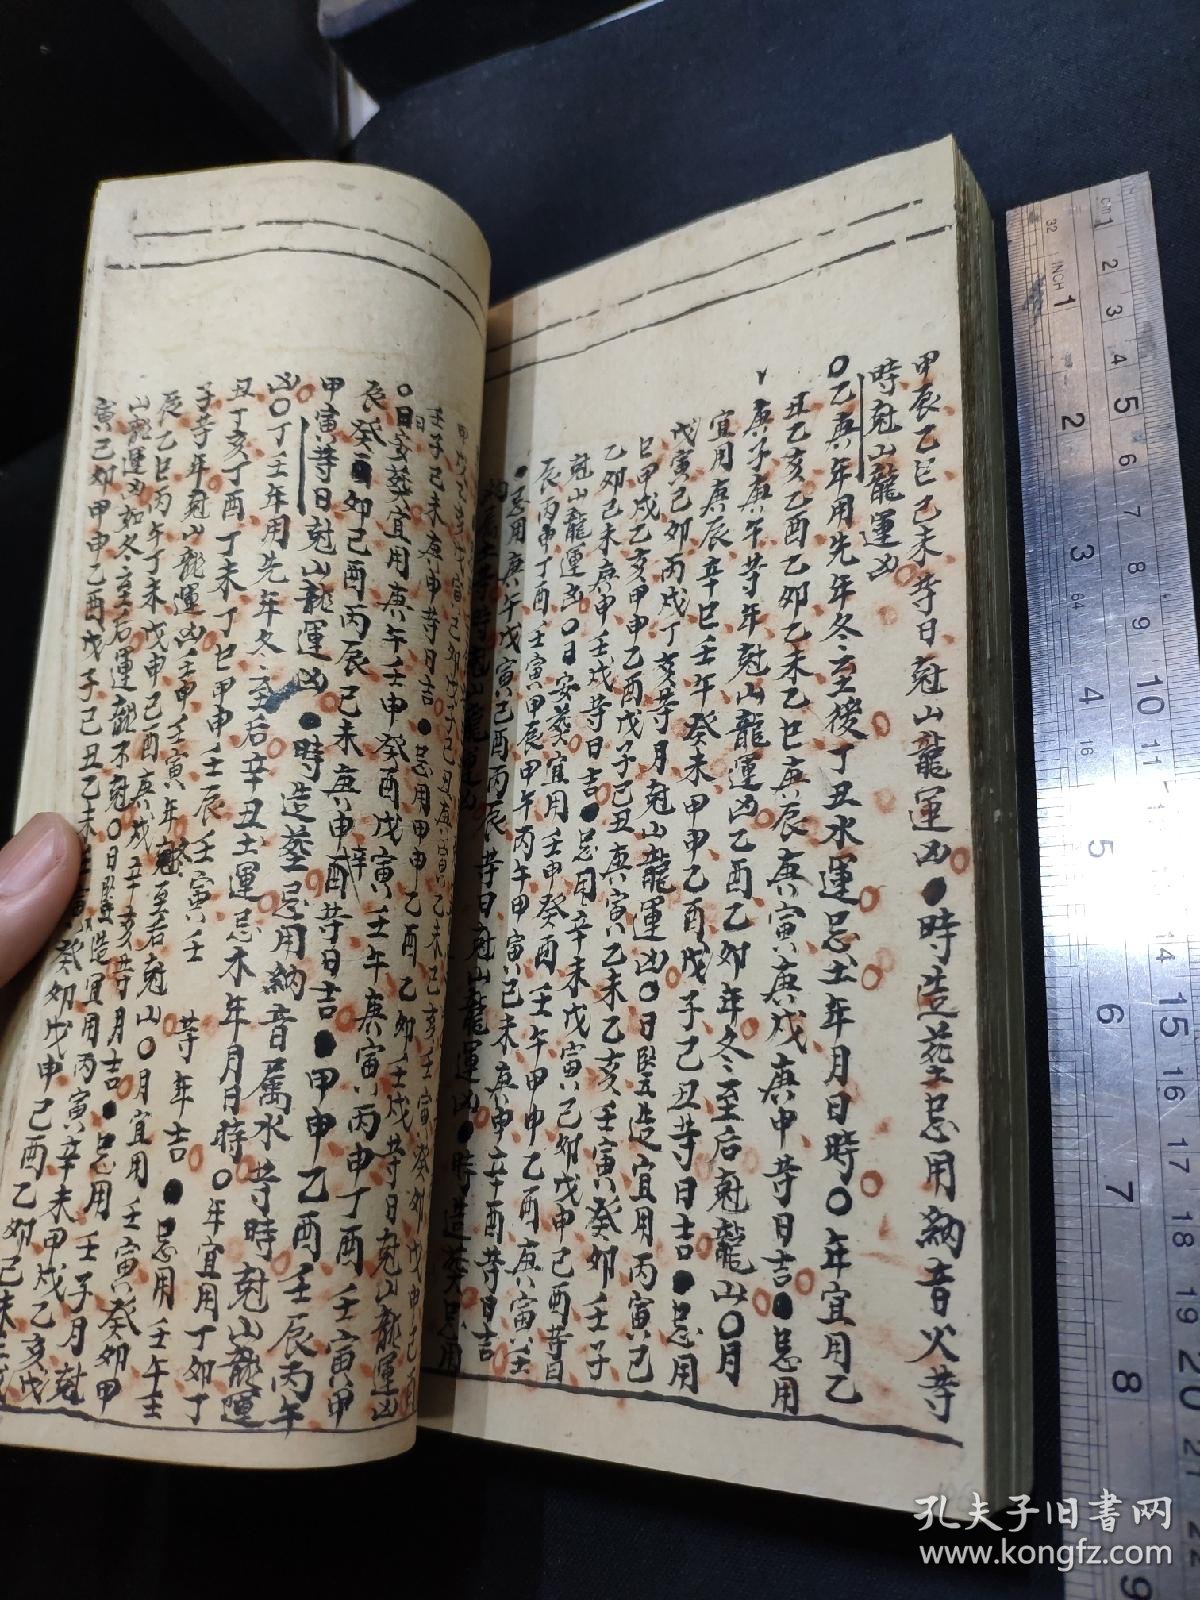 甲辰乙巳己未等日尅山龍運凶●時造葬忌用納音火等
時尅山龍運凶
○乙庚年用先年冬至後丁丑水運忌土年月日時○年宜用乙
丑乙亥乙酉乙卯乙未乙巳庚辰庚寅庚戌庚申等日吉●忌用
庚子庚午等年尅山龍運凶乙酉乙卯年冬至后尅龍山○月
宜用庚辰辛巳壬午癸未甲申乙酉戊子己丑等日吉●忌用
戊寅己卯丙戌丁亥等月尅山龍運凶○日竪造宜用丙寅己
巳甲戌乙亥甲申乙酉戊子己丑庚寅乙未乙亥壬寅癸卯壬子
乙卯己未庚申壬戌等日吉●忌用辛未戊寅己卯戊申己酉等日
尅山龍運凶○日安葬宜用壬申癸酉壬午甲申乙酉庚寅壬
辰丙申丁酉壬寅甲辰甲午丙午甲寅己未庚申辛酉等日吉
●忌用庚午戊寅己酉丙辰等日尅山龍運凶●時造葬忌用
納屬土等時尅山龍運凶
壬子己未庚申等日吉●忌用甲申乙酉乙卯壬戌等日尅山龍運凶
○日安葬宜用庚午壬申癸酉戊寅壬午庚寅丙申丁酉壬寅甲
辰癸卯己酉丙辰己未庚申辛酉等日吉●甲申乙酉壬辰丙午
甲寅等日尅山龍運凶●時造葬忌用納音屬水等時尅山龍運
凶○丁壬年用先年冬至后辛丑土運忌木年月日時○年宜用丁卯丁
丑丁亥丁酉丁未丁巳甲申壬辰壬寅壬 等年吉●忌用壬午壬
子等年尅山龍運凶壬申壬寅年冬至后尅山○月宜用壬寅癸卯甲
辰乙巳丙午丁未戊申己酉庚戌辛亥等月吉●忌用壬子月尅
山龍運凶如冬至后運龍不尅○日竪造宜用丙寅辛未甲戌乙亥戊
寅己卯甲申乙酉戊子己丑乙未壬寅癸卯戊申己酉乙卯己未
孔夫子旧書网
www.kongfz.com